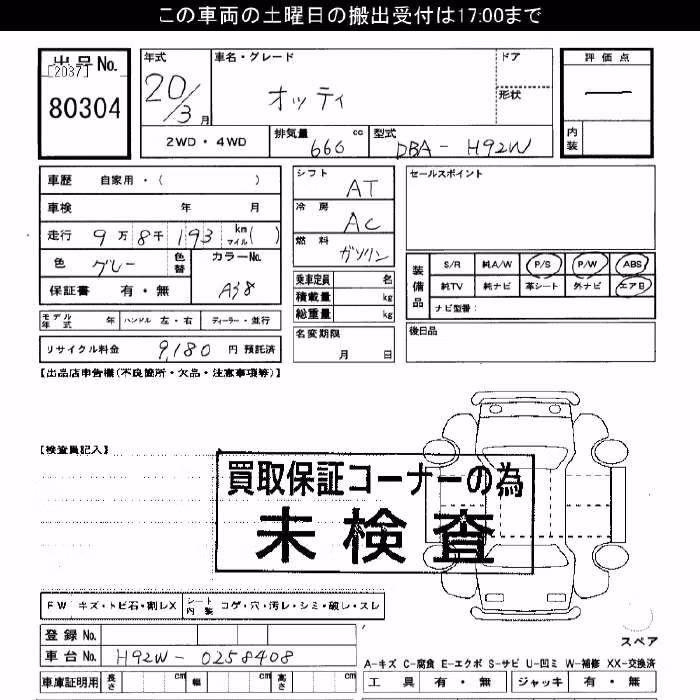 この車両の土曜日の搬出受付は17:00まで
出品No.
[2037]
80304
年式
20/3月
車名・グレード
オッティ
ドア
形状
評価点
—
内装
2WD・4WD
排気量 660 cc
型式 DBA-H92W
車歴 自家用・( )
車検 年 月
走行 9万8千193 km マイル( )
色 グレー
色替
カラーNo.
保証書 有・無
シフト AT
冷房 AC
燃料 ガソリン
乗車定員 名
積載量 kg
総重量 kg
名変期限
月 日
セールスポイント
装備品
S/R 純A/W P/S P/W ABS
純TV 純ナビ 革シート 外ナビ エアB
ナビ型番:
後日品
モデル年式 年 ハンドル 左・右 ディーラー・並行
リサイクル料金 9,180 円 預託済
【出品店申告欄(不良箇所・欠品・注意事項等)】
【検査員記入】
買取保証コーナーの為
未検査
FW キズ・トビ石・割レX
シート内装 コゲ・穴・汚レ・シミ・破レ・スレ
登録No.
車台No. H92W-0258408
車庫証明用 長さ cm 幅 cm 高さ cm
スペア
A-キズ C-腐食 E-エクボ S-サビ U-凹ミ W-補修 XX-交換済
工具 有・無 ジャッキ 有・無